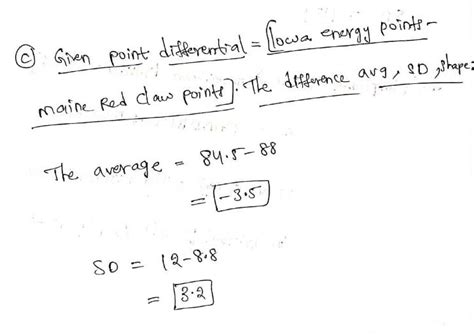 ⓒ Given point differential = [Iowa energy points -
maine Red claw points]. The difference avg, SD, shape:
The average = 84.5-88
= -3.5
SD = 12-8.8
= 3.2